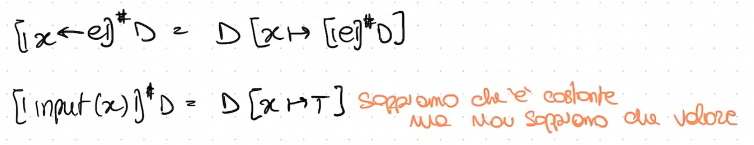 [|x←e|]# D = D[x↦[|e|]# D]
[|input(x)|]# D = D[x↦T] sappiamo che è costante
ma non sappiamo che valore